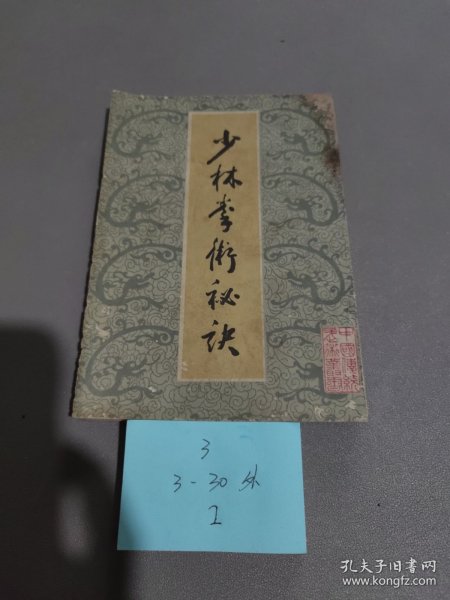 少林拳術秘訣
3
3-30外
1
孔夫子旧书网
www.kongfz.com